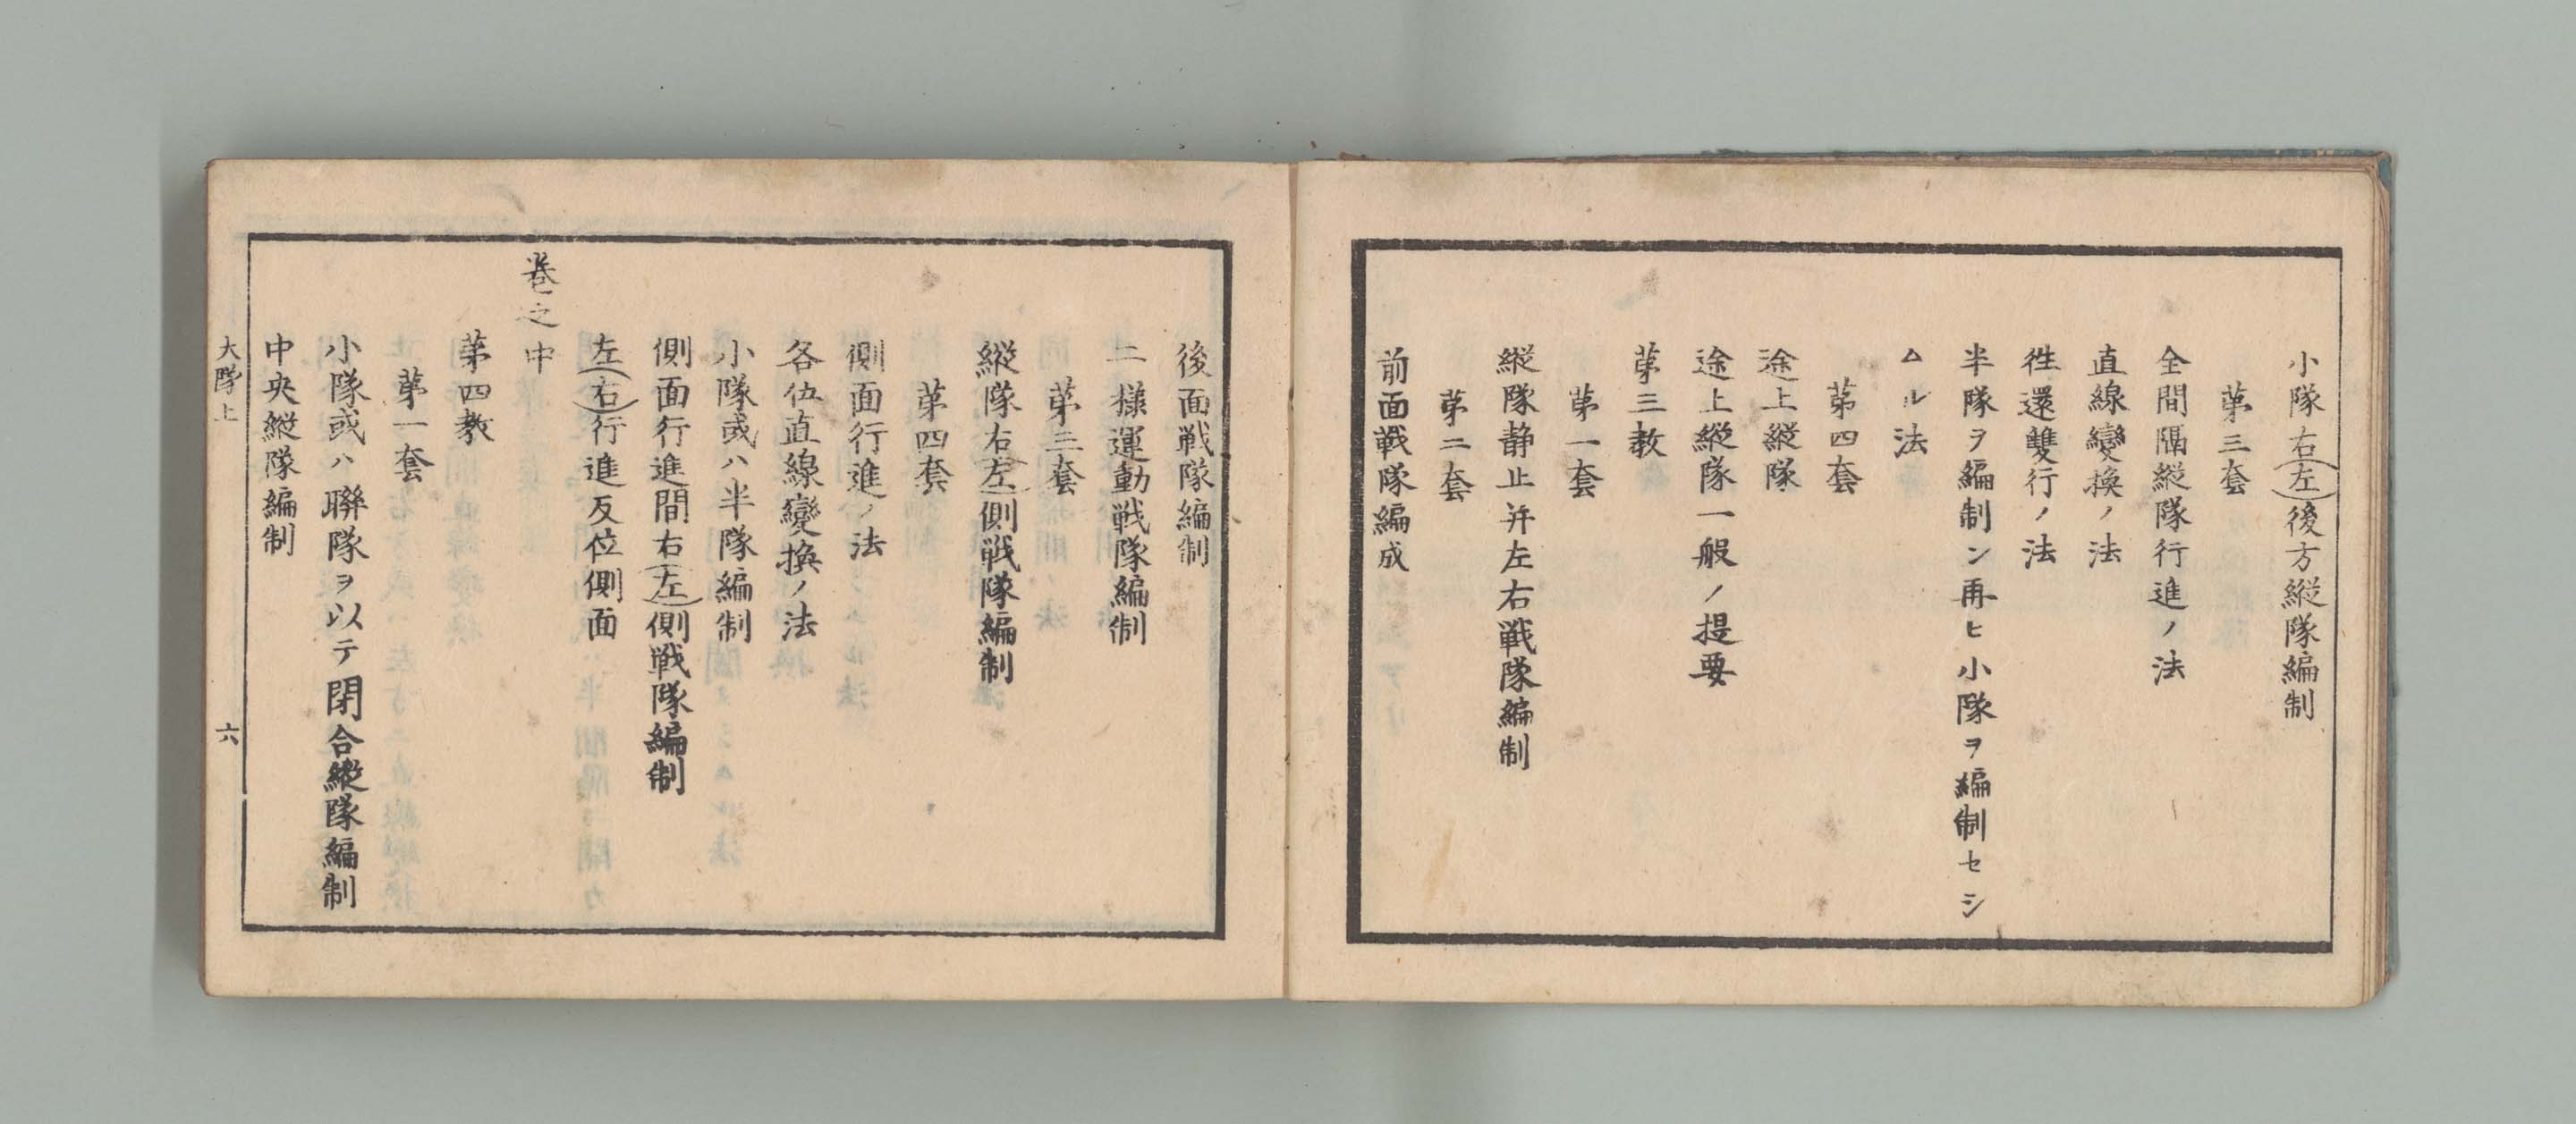 小隊右(左)後方縦隊編制
第三套
全間隔縦隊行進ノ法
直線變換ノ法
徃還雙行ノ法
半隊ヲ編制シ再ヒ小隊ヲ編制セシ
ムル法
第四套
途上縦隊
途上縦隊一般ノ提要
第三教
第一套
縦隊静止并左右戦隊編制
第二套
前面戦隊編成
後面戦隊編制
二様運動戦隊編制
第三套
縦隊右(左)側戦隊編制
第四套
側面行進ノ法
各伍直線變換ノ法
小隊或ハ半隊編制
側面行進間右(左)側戦隊編制
左(右)行進反位側面
巻之中
第四教
第一套
小隊或ハ聯隊ヲ以テ閉合縦隊編制
中央縦隊編制
大隊上 六